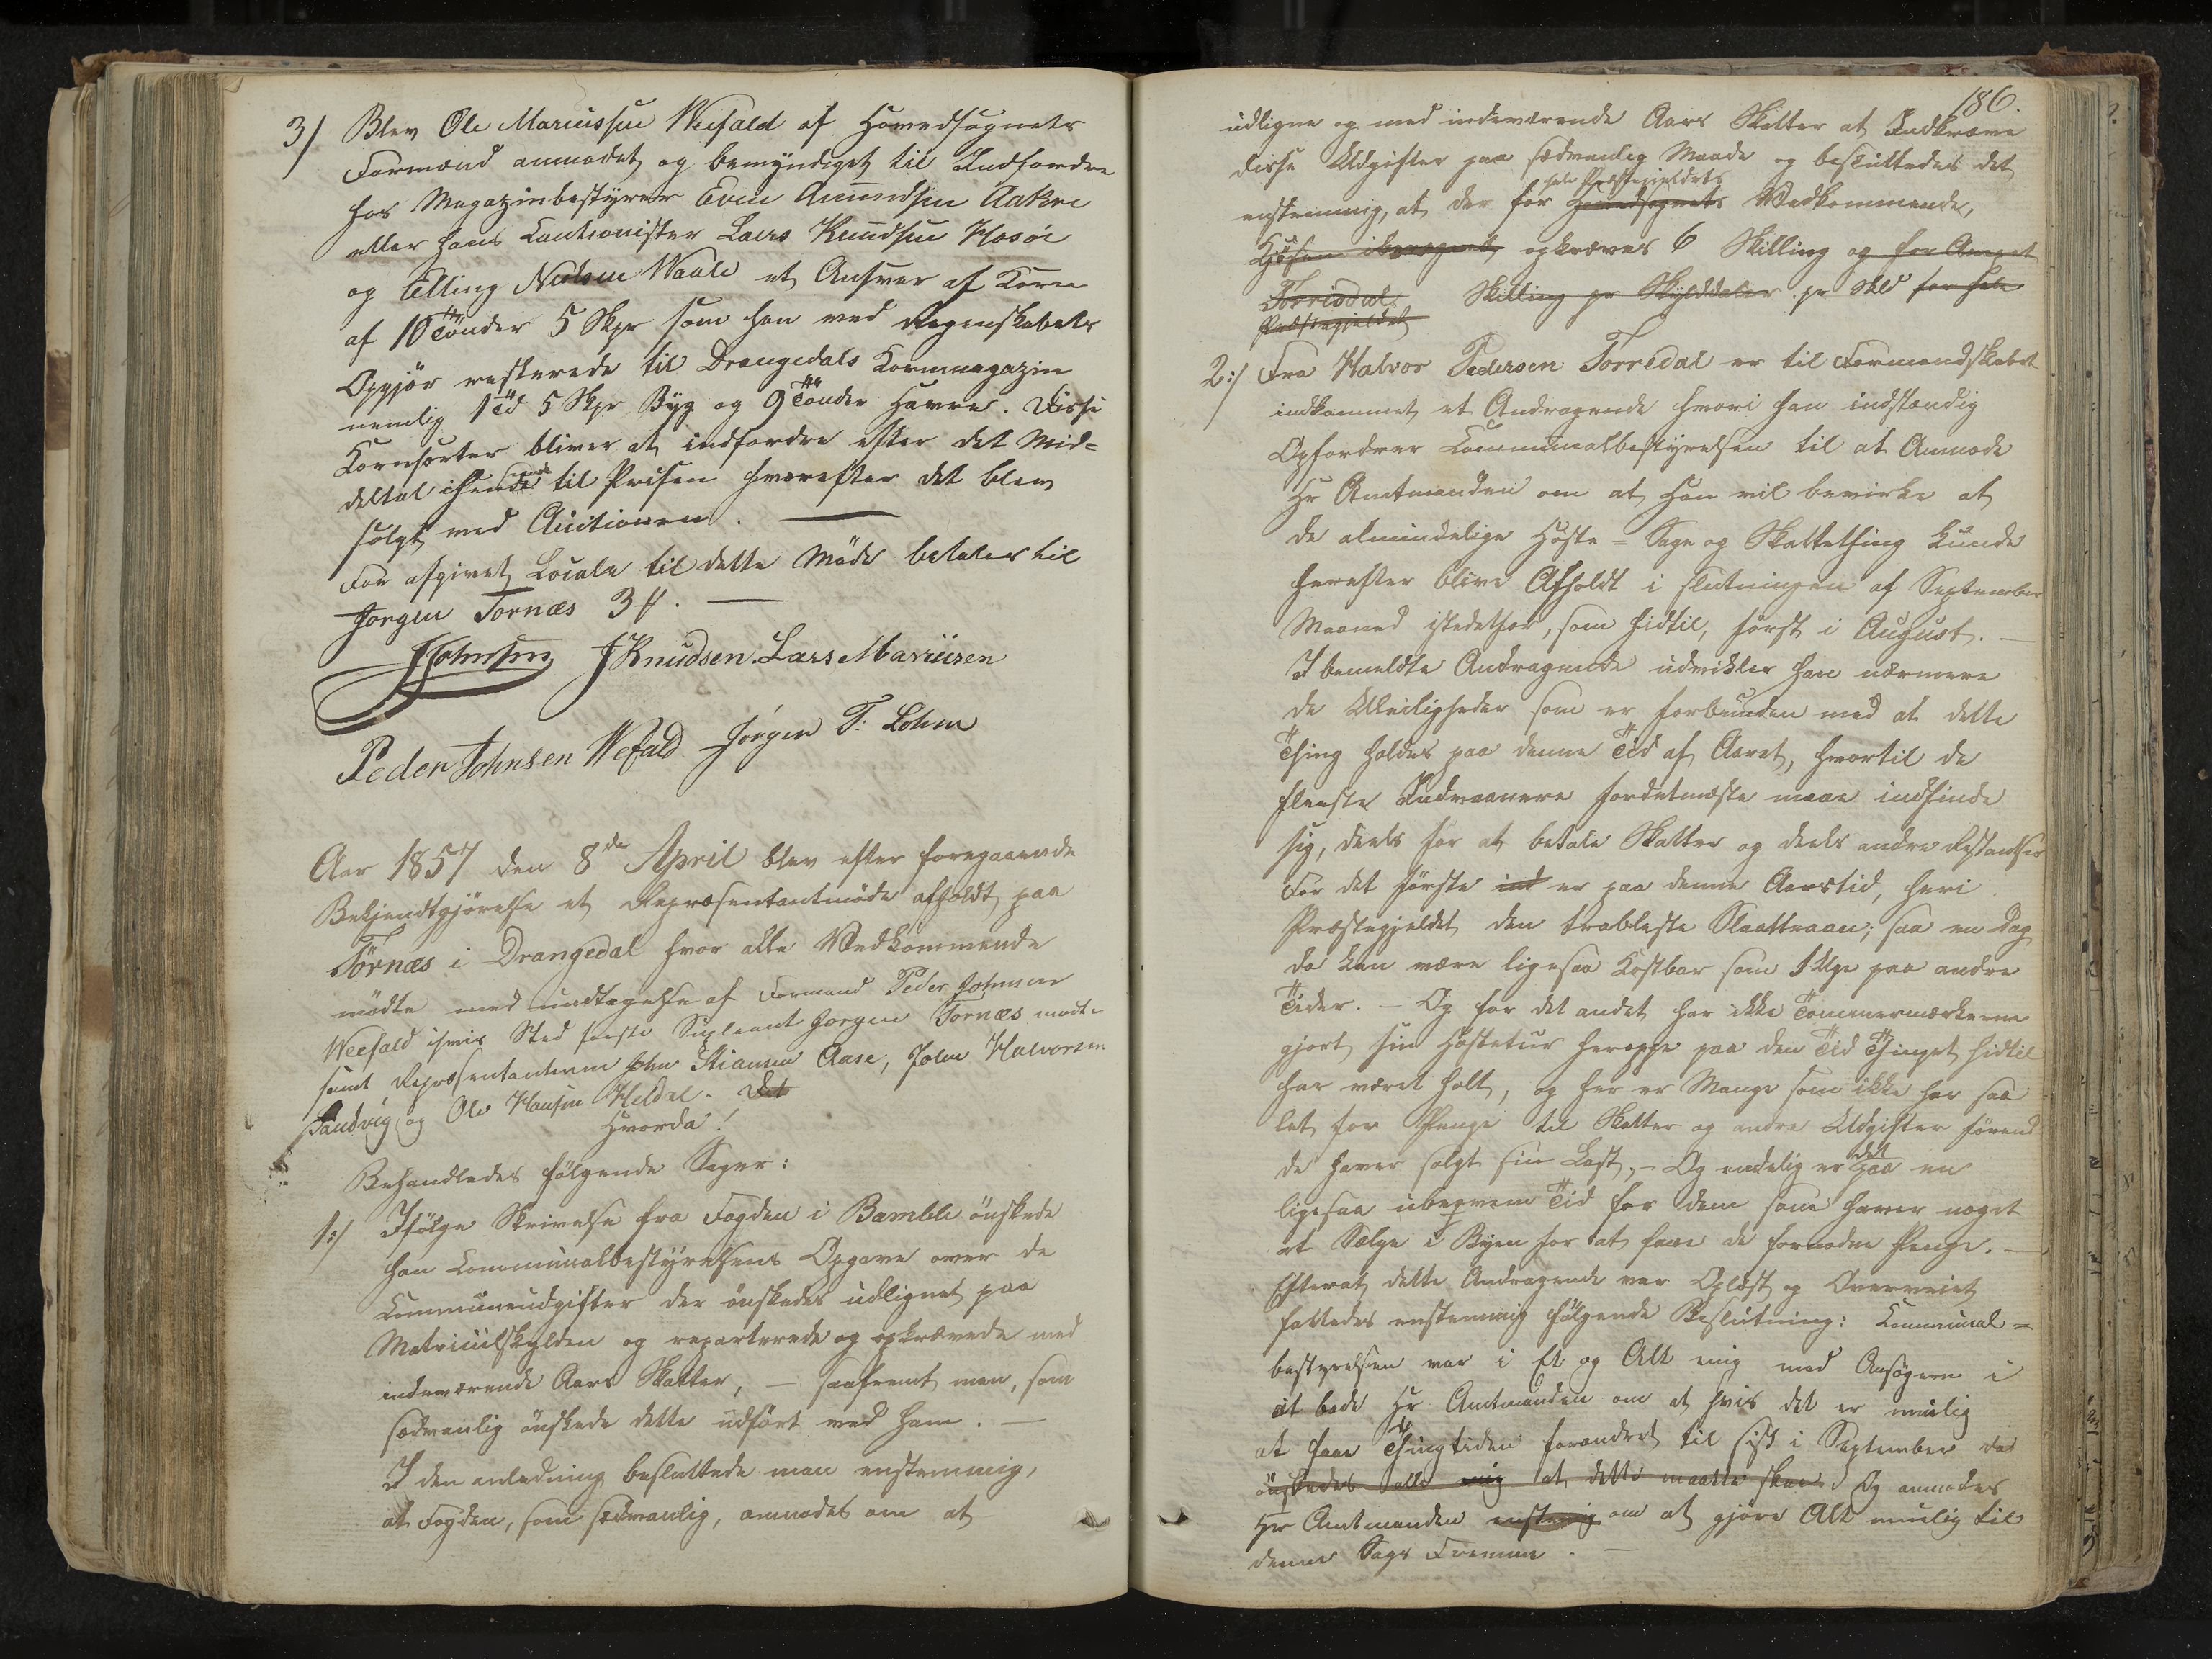 3/ Blev Ole Mariussen Weefald af Hovedsognets
Formænd anmodet og bemyndiget til Indfordre
hos Magazinbestyrer Even Amundsen Aakre
eller hans Cautionister Lars Knudsen Hosøe
og Elling Nielsen Waale et Ansvar af Korn
af 10 Tönder 5 Skpr som han ved Regnskabets
Opgjör resterede til Drangedals Kornmagazin
nemlig 1 Td 5 Skpr Byg og 9 Tönder Havre. Disse
Kornsorter bliver at indfordre efter det Mid-
deltal i Hende til Prisen hvorefter det blev
solgt ved Auctionen. —
For afgivet Locale til dette Möde betales til
Jørgen Tornæs 3 #. —
JJohnsen JKnudsen. Lars Mariusen
Peder Johnsen Wefald Jørgen T: Lohne
Aar 1857 den 8de April blev efter foregaaende
Bekjendtgjörelse et Repræsentantmöde afholdt paa
Törnæs i Drangedal hvor alle Vedkommende
mödte med undtagelse af Formand Peder Johnsen
Weefald i hvis Sted første Supleant Jørgen Tornæs mødte
samt Repræsentanterne John Stiansen Aase, John Halvorsen
Sandvig og Ole Hansen Heldal. Det
Hvorda!
Behandledes fölgende Sager:
1:/ Ifölge Skrivelse fra Fogden i Bamble önskede
han Communalbestyrelsens Opgave over de
Communeudgifter der önskedes udlignet paa
Matriculskylden og reparterede og opkrævede med
indeværende Aars Skatter, — saafremt man, som
sædvanlig önskede dette udfört ved ham. —
I den anledning besluttede man enstemmig,
at Fogden, som sædvanlig, anmodes om at
186.
udligne og med indeværende Aars Skatter at Indkræve
disse Udgifter paa sædvanlig Maade og besluttedes det
hele Præstegjeldets
enstemmig, at der for Hovedsognets Vedkommende,
opkræves 6 Skilling og for Annexet
Törisdal Skilling pr Skylddaler pr Skld for hele
Præstegjeldet
2:/ Fra Halvor Pedersen Torredal er til Formandskabet
indkommet et Andragende hvori han indstændig
Opfordrer Communalbestyrelsen til at Anmode
Hr Amtmanden om at han vil bevirke at
de almindelige Høste- Sage og Skattething kunde
herefter blive Afholdt i slutningen af September
Maaned istedetfor, som hidtil, først i August. —
I bemeldte Andragende udvikler han nærmere
de Uleiligheder som er forbunden med at dette
Thing holdes paa denne Tid af Aaret, hvortil de
fleeste Indvaanere fordetmeste maae indfinde
sig, deels for at betale Skatter og deels andre Restantser
For det første ind er paa denne Aarstid, heri
Præstegjeldet den trableste Slaatteaan; saa en Dag
da kan være ligesaa Kostbar som 1 Uge paa andre
Tider. — Og for det andet har ikke Tommermærkerne
gjort sin Høstetur heroppe paa den Tid Thinget hidtil
har været holt, og her er Mange som ikke har saa
let for Penge til Skatter og andre Udgifter førend
de haver solgt sin Last, — Og endelig er det paa en
ligesaa ubeqvem Tid for dem som haver noget
at Sælge i Byen for at faae de fornødne Penge. —
Efterat dette Andragende var Oplæst og Overveiet
fattedes enstemmig fölgende Beslutning: Communal-
bestyrelsen var i Et og Alt enig med Ansøgeren i
at bede Hr Amtmanden om at hvis det er mulig
at faae Thingtiden forandret til sidst i September da
önskedes alle enig at dette maatte skee Og anmodes
Hr Amtmanden enstemig om at gjöre Alt mulig til
denne Sags Fremme. —